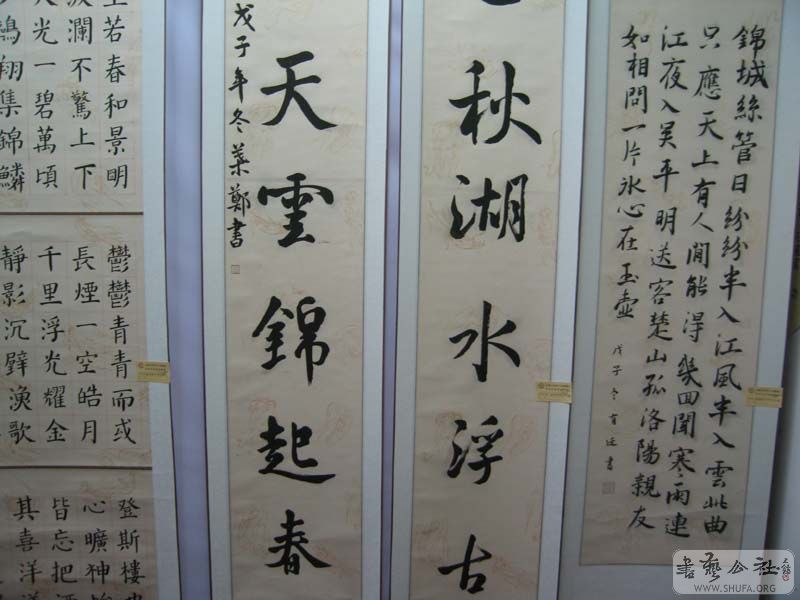 錦城絲管日紛紛半入江風半入雲此曲
只應天上有人間能得幾回聞寒雨連
江夜入吳平明送客楚山孤洛陽親友
如相問一片冰心在玉壺
戊子冬
秋湖水浮古
天雲錦起春
戊子年冬葉鄭書
若春和景明
波瀾不驚上下
光一碧萬頃
翔集錦鱗
鬱鬱青青而或
長煙一空皓月
千里浮光耀金
靜影沉璧漁歌
登斯樓
心曠神
皆忘把
其喜洋
書藝公社
WWW.SHUFA.ORG